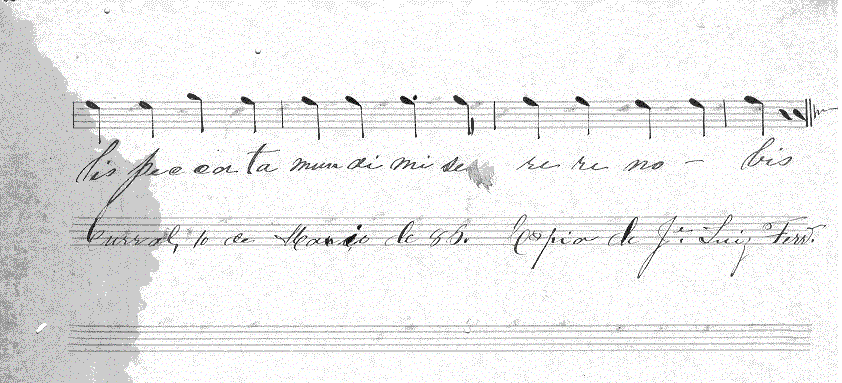 lis pec ca ta mun di mi se re re no - bis
Curral, 10 de Março de 86. Copia de Je. Luiz Ferr.